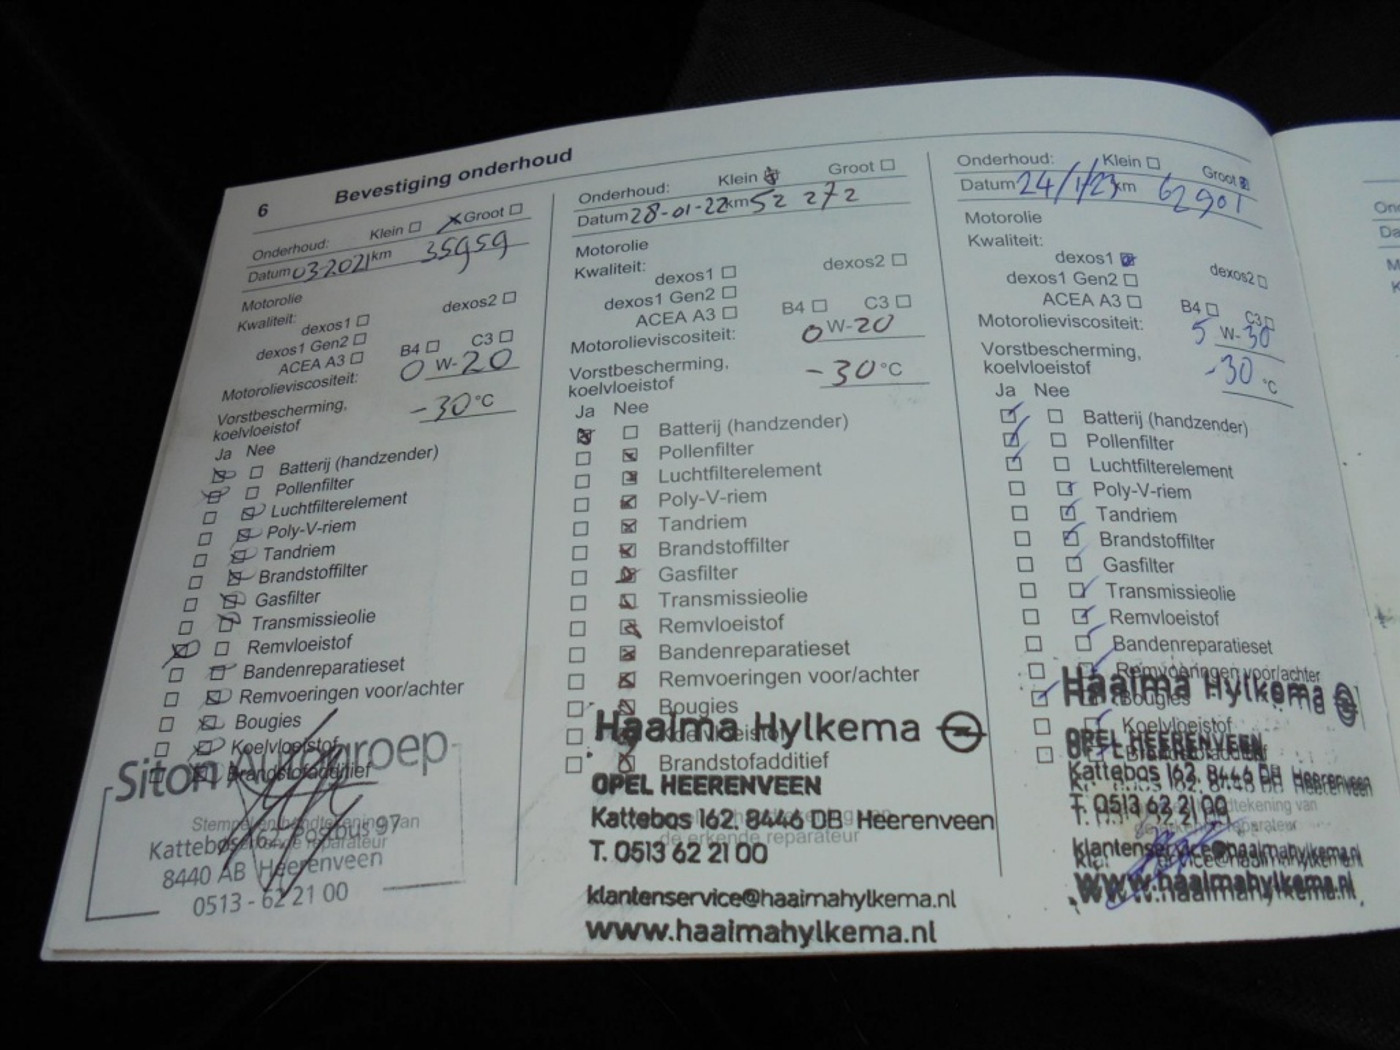 6 Bevestiging onderhoud
Onderhoud: Klein Groot
Datum 03-2021 km 35959
Motorolie
Kwaliteit: dexos1 dexos2
dexos1 Gen2
ACEA A3 B4 C3
Motorolieviscositeit: 0 W-20
Vorstbescherming,
koelvloeistof -30 °C
Ja Nee
Batterij (handzender)
Pollenfilter
Luchtfilterelement
Poly-V-riem
Tandriem
Brandstoffilter
Gasfilter
Transmissieolie
Remvloeistof
Bandenreparatieset
Remvoeringen voor/achter
Bougies
Koelvloeistof
Brandstofadditief
Siton Autogroep
Stempel en handtekening van
de erkende reparateur
Kattebos 162, Postbus 97
8440 AB Heerenveen
0513 - 62 21 00
Onderhoud: Klein Groot
Datum 28-01-22 km 52 272
Motorolie
Kwaliteit: dexos1 dexos2
dexos1 Gen2
ACEA A3 B4 C3
Motorolieviscositeit: 0 W-20
Vorstbescherming,
koelvloeistof -30 °C
Ja Nee
Batterij (handzender)
Pollenfilter
Luchtfilterelement
Poly-V-riem
Tandriem
Brandstoffilter
Gasfilter
Transmissieolie
Remvloeistof
Bandenreparatieset
Remvoeringen voor/achter
Bougies
Koelvloeistof
Haaima Hylkema
Brandstofadditief
OPEL HEERENVEEN
Kattebos 162, 8446 DB Heerenveen
de erkende reparateur
T. 0513 62 21 00
klantenservice@haaimahylkema.nl
www.haaimahylkema.nl
Onderhoud: Klein Groot
Datum 24/1/23 km 62901
Motorolie
Kwaliteit:
dexos1 dexos2
dexos1 Gen2
ACEA A3 B4 C3
Motorolieviscositeit: 5 W-30
Vorstbescherming,
koelvloeistof -30 °C
Ja Nee
Batterij (handzender)
Pollenfilter
Luchtfilterelement
Poly-V-riem
Tandriem
Brandstoffilter
Gasfilter
Transmissieolie
Remvloeistof
Bandenreparatieset
Remvoeringen voor/achter
Haaima Hylkema
Bougies
Koelvloeistof
OPEL HEERENVEEN
Kattebos 162, 8446 DB Heerenveen
T. 0513 62 21 00
klantenservice@haaimahylkema.nl
www.haaimahylkema.nl